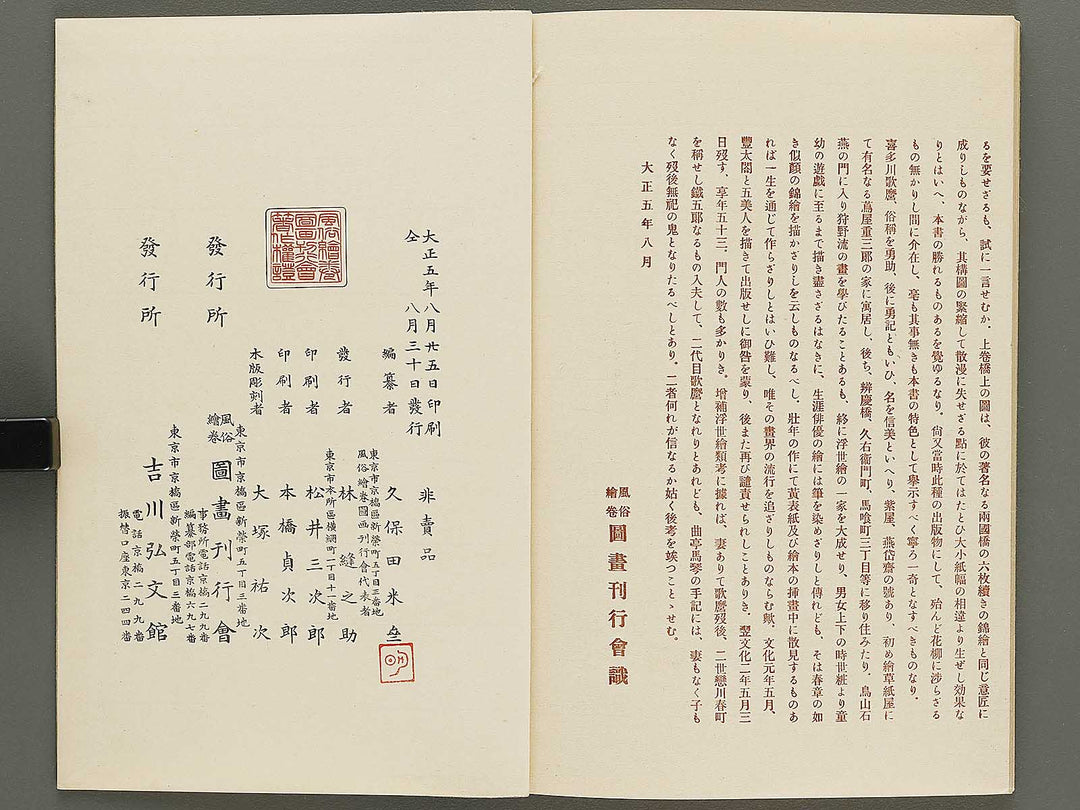 るを要せざるも、試に一言せむか、上卷橋上の圖は、彼の著名なる兩國橋の六枚續きの錦繪と同じ意匠に
成りしものながら、其構圖の緊縮して散漫に失せざる點に於てはたとひ大小紙幅の相違より生ぜし効果な
りとはいへ、本書の勝れるものあるを覺ゆるなり。尙又當時此種の出版物にして、殆んど花柳に涉らざる
もの無かりし間に介在し、毫も其事無きも本書の特色として擧示すべく寧ろ一奇となすべきものなり。
喜多川歌麿、俗稱を勇助、後に勇記ともいひ、名を信美といへり、紫屋、燕岱齋の號あり、初め繪草紙屋に
て有名なる蔦屋重三郎の家に寓居し、後ち、辨慶橋、久右衞門町、馬喰町三丁目等に移り住みたり、鳥山石
燕の門に入り狩野流の畫を學びたることあるも、終に浮世繪の一家を大成せり、男女上下の時世粧より童
幼の遊戲に至るまで描き盡さざるはなきに、生涯俳優の繪には筆を染めざりしと傳れども、そは春章の如
き似顏の錦繪を描かざりしを云しものなるべし。壯年の作にて黃表紙及び繪本の挿畫中に散見するものあ
れば一生を通じて作らざりしとはいひ難し、唯その畫界の流行を追ざりしものならむ歟、文化元年五月、
豐太閤と五美人を描きて出版せしに御咎を蒙り、後また再び譴責せられしことありき、翌文化二年五月三
日歿す、享年五十三、門人の數も多かりき。增補浮世繪類考に據れば、妻ありて歌麿歿後、二世戀川春町
を稱せし鐵五郞なるもの入夫して、二代目歌麿となれりとあれども、曲亭馬琴の手記には、妻もなく子も
なく歿後無祀の鬼となりたるべしとあり。二者何れが信なるか姑く後考を竢つことゝせむ。
大正五年八月
風俗繪卷圖畫刊行會識
大正五年八月廿五日印刷
仝 八月三十日發行
非賣品
編纂者 久保田米㕘
東京市京橋區新榮町五丁目三番地
風俗繪卷圖画刊行會代表者
發行者 林縫之助
東京市本所區横網町一丁目十一番地
印刷者 松井三次郎
印刷者 本橋貞次郎
木版彫刻者 大塚祐次
風俗繪卷圖畫刊行會著作權證
東京市京橋區新榮町五丁目三番地
發行所 風俗繪卷圖畫刊行會
事務所電話京橋二九九番
編纂部電話京橋六九七番
東京市京橋區新榮町五丁目三番地
發行所 吉川弘文館
電話京橋二九九番
振替口座東京二四四番